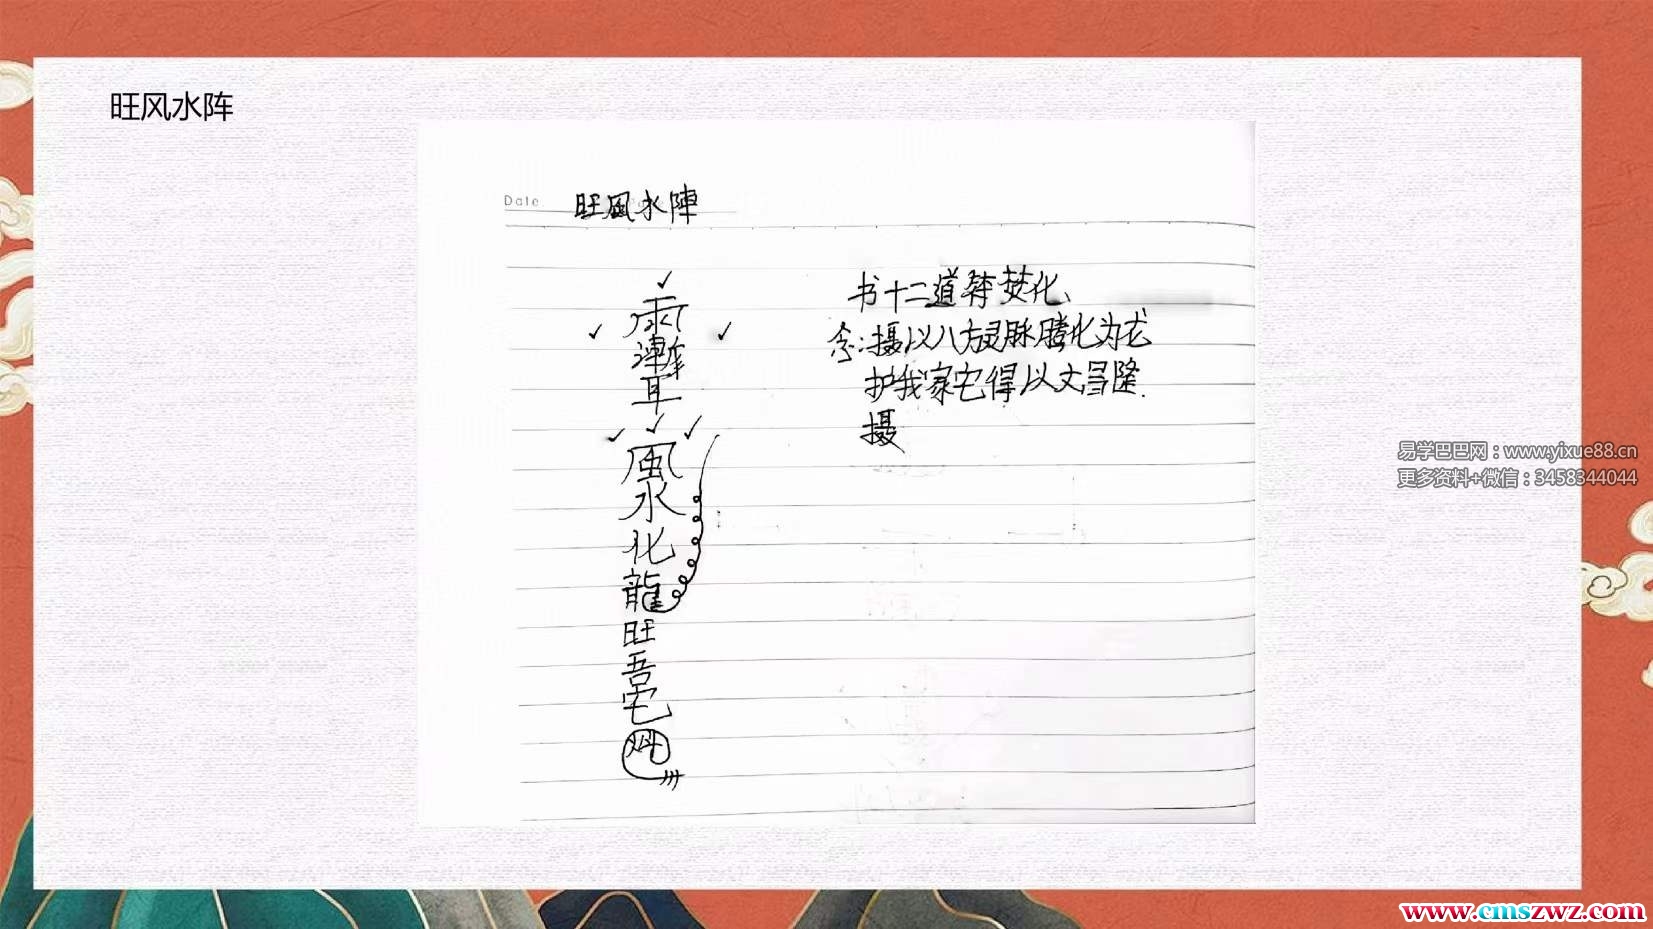 旺风水阵
Date
旺風水陣
書十二道符焚化、
念:摄以八方灵脉腾化为龙
护我家宅得以文昌隆.
摄
雨漸耳
風水化龍旺吾宅
罡
易学巴巴网：www.yixue88.cn
更多资料+微信：3458344044
www.cmszwz.com